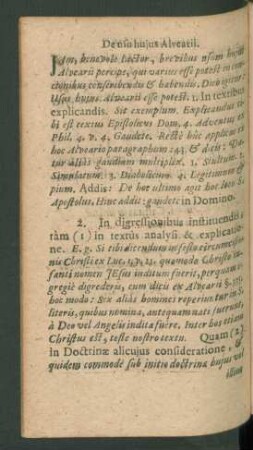 De usu hujus Alvearii.
JAm, benevole Lector, brevibus usum hujus
Alvearii percipe, qui varius esse potest in con-
cionibus conscribendis & habendis. Dico igitur
Usus hujus Alvearii esse potest. 1. In textibus
explicandis. Sit exemplum. Explicandus ti-
bi est textus Epistolicus Dom. 4. Adventus ex
Phil. 4. v. 4. Gaudete. Recte huc applicas ex
hoc Alveario paragraphum 243 & dicis: Da-
tur aliàs gaudium multiplex. 1. Stultum. 2.
Simulatum. 3. Diabolicum. 4. Legitimum &
pium. Addis: De hoc ultimo agit hoc loco S.
Apostolus, Hinc addit: gaudete in Domino.
2. In digressionibus instituendis
tàm (1) in textus analysi & explicatio-
ne. E. g. Si tibi dicendum in festo circumcisio-
nis Christi ex Luc. 1, v. 21. quomodo Christo in-
fanti nomen JEsus inditum fuerit, per quam e-
gregiè digredieris, cum dicis ex Alvearii §.
hoc modo: Sex aliàs homines reperiuntur in S.
literis, quibus nomina, antequam nati fuerunt,
à Deo vel Angelis indita fuêre. Inter hos etiam
Christus est, teste nostro textu. Quam (2.)
In Doctrinæ alicujus consideratione, &
quidem commodè sub initio doctrinæ hujus vel
illius